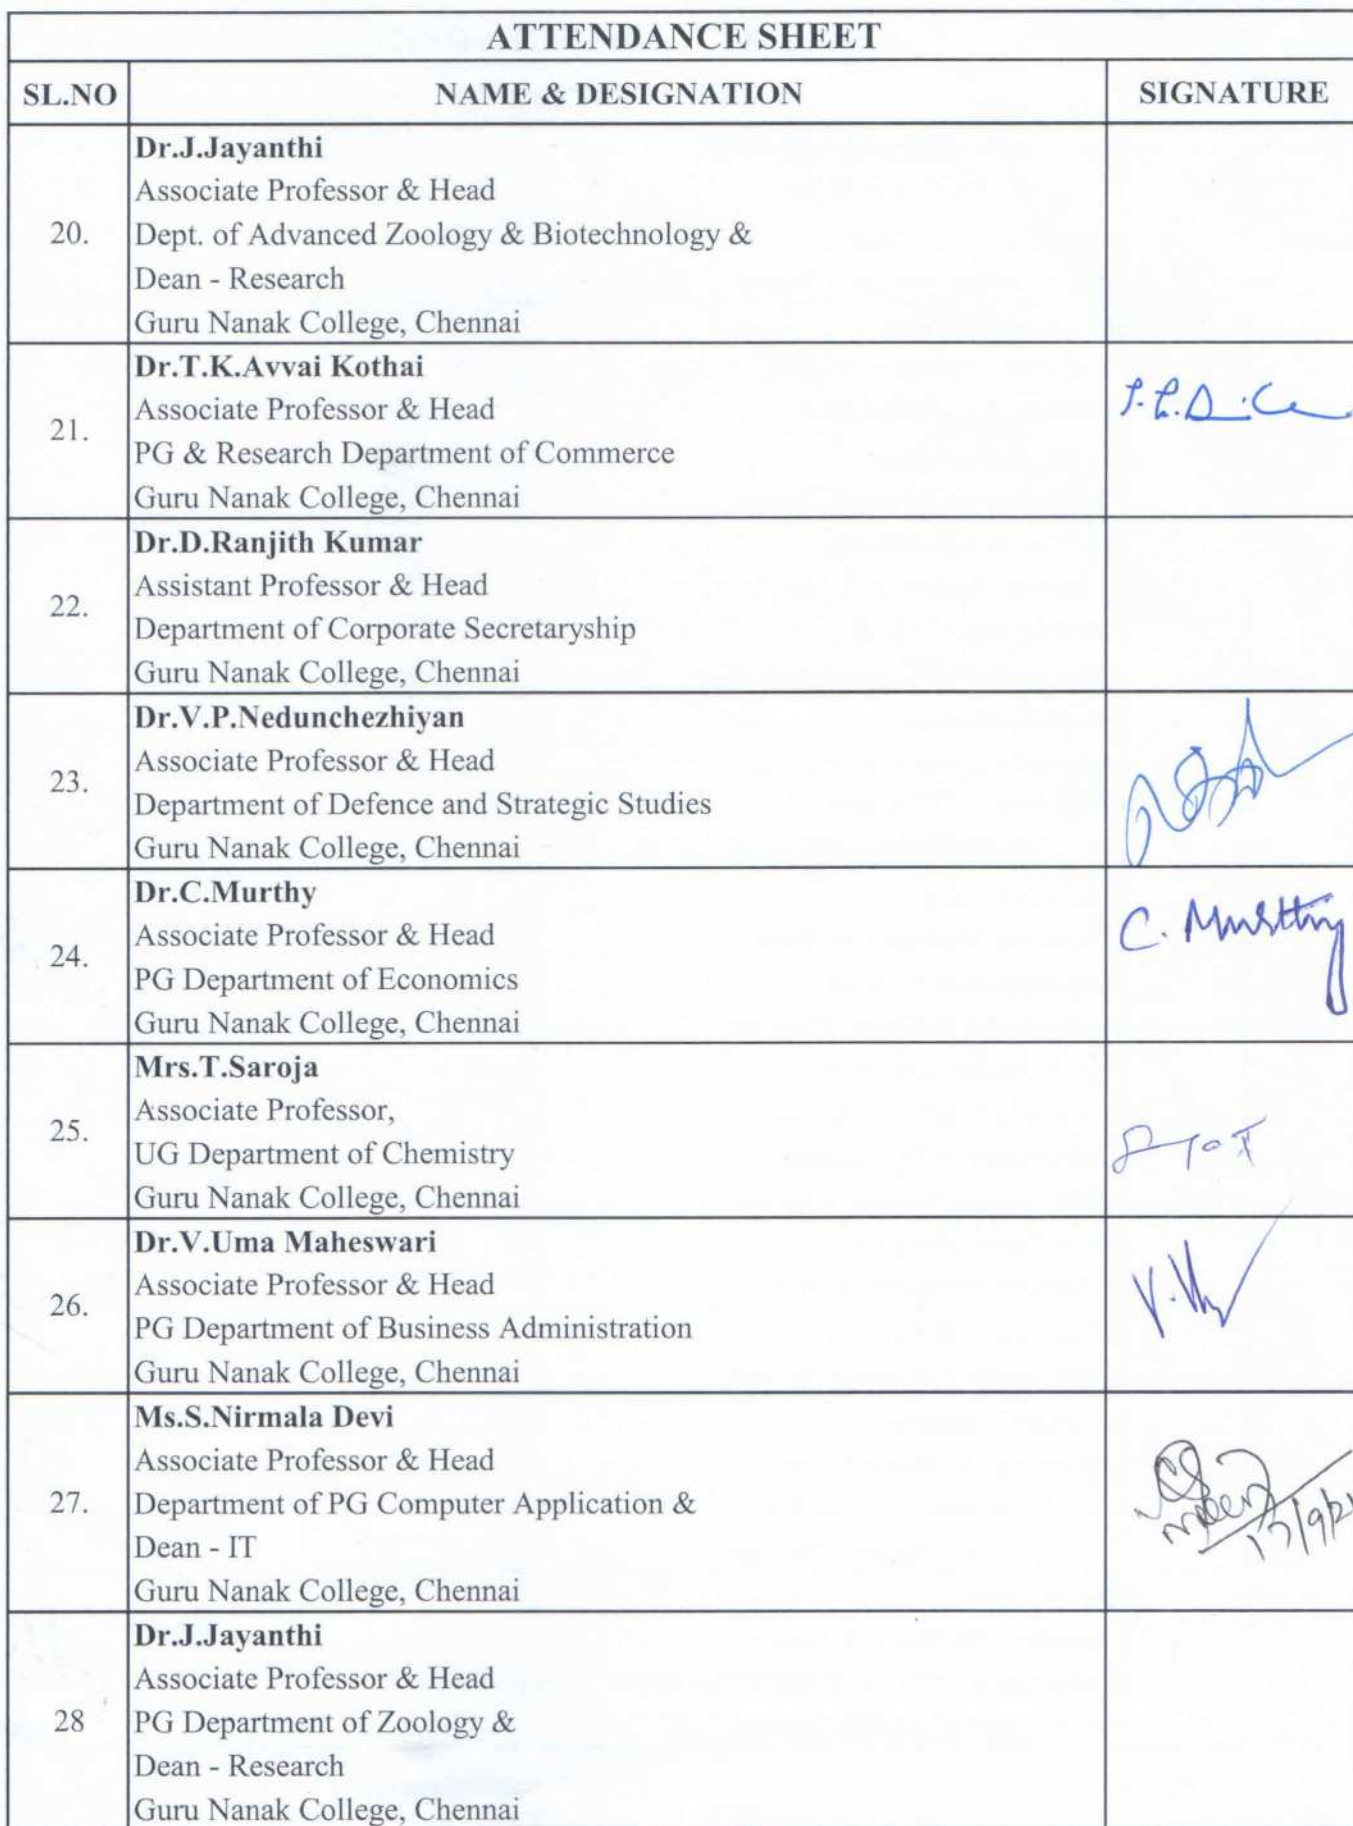 ATTENDANCE SHEET
SL.NO NAME & DESIGNATION SIGNATURE
Dr.J.Jayanthi
Associate Professor & Head
20. Dept. of Advanced Zoology & Biotechnology &
Dean - Research
Guru Nanak College, Chennai
Dr.T.K.Avvai Kothai
Associate Professor & Head
21.
PG & Research Department of Commerce
Guru Nanak College, Chennai
Dr.D.Ranjith Kumar
Assistant Professor & Head
22.
Department of Corporate Secretaryship
Guru Nanak College, Chennai
Dr.V.P.Nedunchezhiyan
Associate Professor & Head
23.
Department of Defence and Strategic Studies
Guru Nanak College, Chennai
Dr.C.Murthy
C. Murthy
Associate Professor & Head
24.
PG Department of Economics
Guru Nanak College, Chennai
Mrs.T.Saroja
Associate Professor,
25.
UG Department of Chemistry
Guru Nanak College, Chennai
Dr.V.Uma Maheswari
Associate Professor & Head
26.
PG Department of Business Administration
Guru Nanak College, Chennai
Ms.S.Nirmala Devi
Associate Professor & Head
27. Department of PG Computer Application &
17/9/21
Dean - IT
Guru Nanak College, Chennai
Dr.J.Jayanthi
Associate Professor & Head
28 PG Department of Zoology &
Dean - Research
Guru Nanak College, Chennai